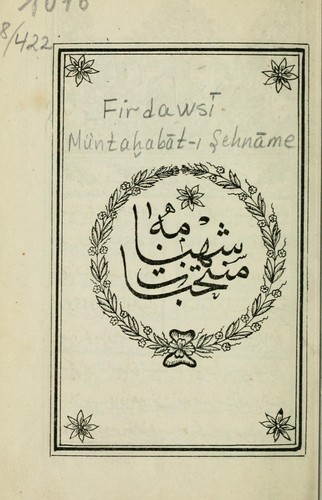 1016
8/422
Firdawsī-
Müntaḫabāt-ı Şehnāme
منتخبات شهنامه